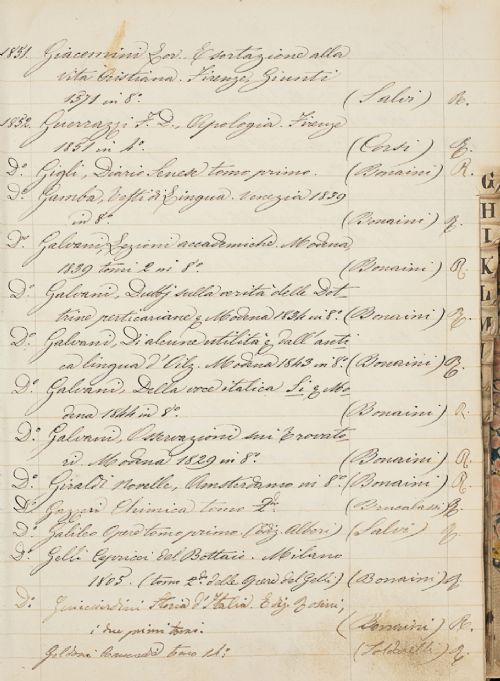 1851. Giacomini Lor. Esortazione alla
vita Cristiana. Firenze, Giunti
1571 in 8.° (Salvi) R.
1852. Guerrazzi F. D., Apologia. Firenze
1851 in 4.° (Corsi) R.
D.° Gigli, Diario Senese tomo primo. (Bonaini) R.
D.° Gamba, Testi di Lingua. Venezia 1839
in 8.° (Bonaini) R.
D.° Galvani, Lezioni accademiche. Modena
1839 tomi 2 in 8.° (Bonaini) R.
D.° Galvani, Dubbj sulla verità delle Dot-
trine perticariane & Modena 1834 in 8.° (Bonaini) R.
D.° Galvani, Di alcune utilità & dall'anti
ca lingua d'Oil &. Modena 1843 in 8.° (Bonaini) R.
D.° Galvani, Della voce italica Si & Mo-
dena 1844 in 8.° (Bonaini) R.
D.° Galvani, Osservazioni sui Trovato-
ri. Modena 1829 in 8.° (Bonaini) R.
D.° Giraldi Novelle, Amsterdamo in 8.° (Bonaini) R.
D.° Gazzeri Chimica tomo (Brucalassi) R.
D.° Galileo Opere tomo primo (Ediz. Alberi) (Salvi) R.
D.° Gelli Capricci del Bottaio. Milano
1805. (tomo 2.do delle Opere del Gelli) (Bonaini) R.
D.° Guicciardini Storia d'Italia. Ediz. Rosini,
i due primi tomi. (Bonaini) R.
Goldoni Commedie tomo 14.° R.
G
H
I
K
L
M